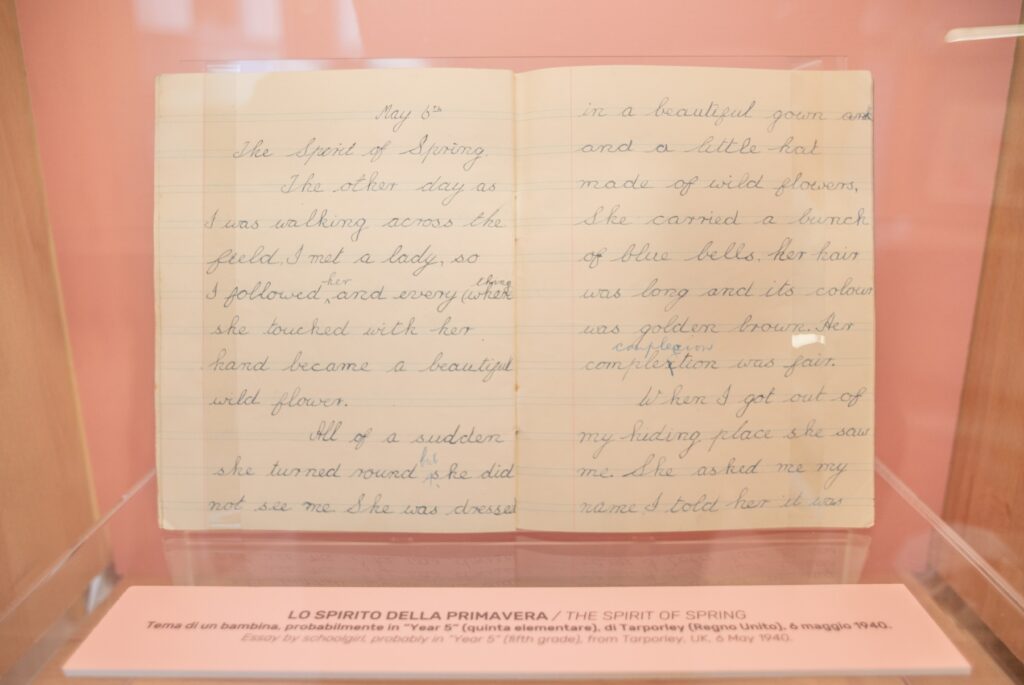 May 6th
The Spirit of Spring.
The other day as
I was walking across the
field, I met a lady, so
her thing
I followed, and every (when
she touched with her
hand became a beautiful
wild flower.
All of a sudden
but
she turned round she did
not see me She was dressed
in a beautiful gown and
and a little hat
made of wild flowers,
She carried a bunch
of blue bells, her hair
was long and its colour
was golden brown. Her
complexion
complextion was fair.
When I got out of
my hiding place she saw
me. She asked me my
name I told her it was
LO SPIRITO DELLA PRIMAVERA / THE SPIRIT OF SPRING
Tema di un bambina, probabilmente in "Year 5" (quinta elementare), di Tarporley (Regno Unito), 6 maggio 1940.
Essay by schoolgirl, probably in "Year 5" (fifth grade), from Tarporley, UK, 6 May 1940.